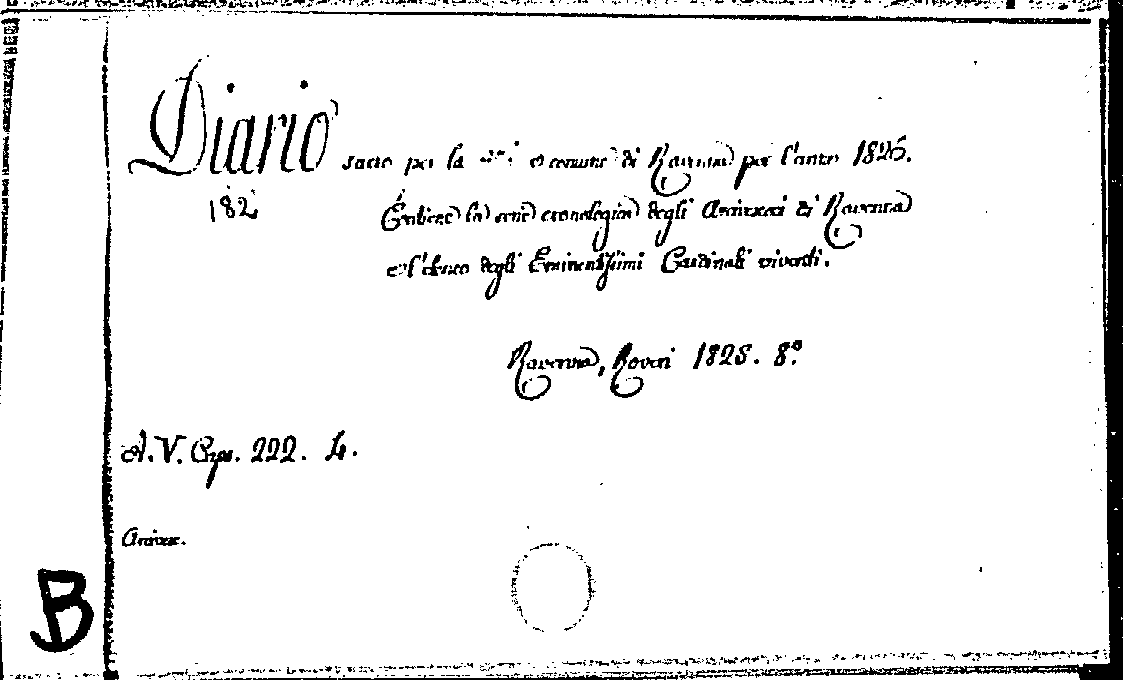 Diario sacro per la città e comune di Ravenna per l'anno 1826.
182
Evvi la serie cronologica degli Arcivescovi di Ravenna
e l'elenco degli Eminentissimi Cardinali viventi.
Ravenna, Roveri 1825. 8º
A. V. Caps. 222. 4.
B